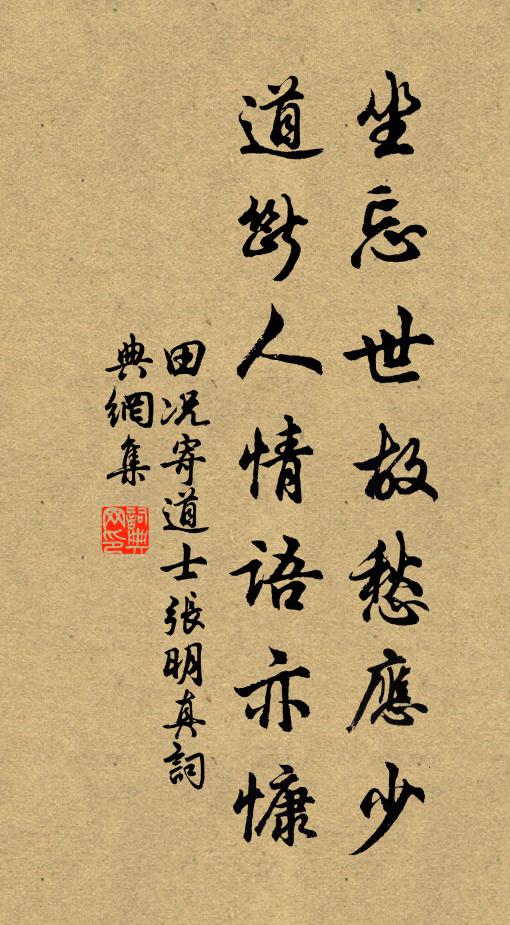 坐忘世故愁應少
道斷人情語亦慷
田況寄道士張明真詞
典網集
詞典
网印